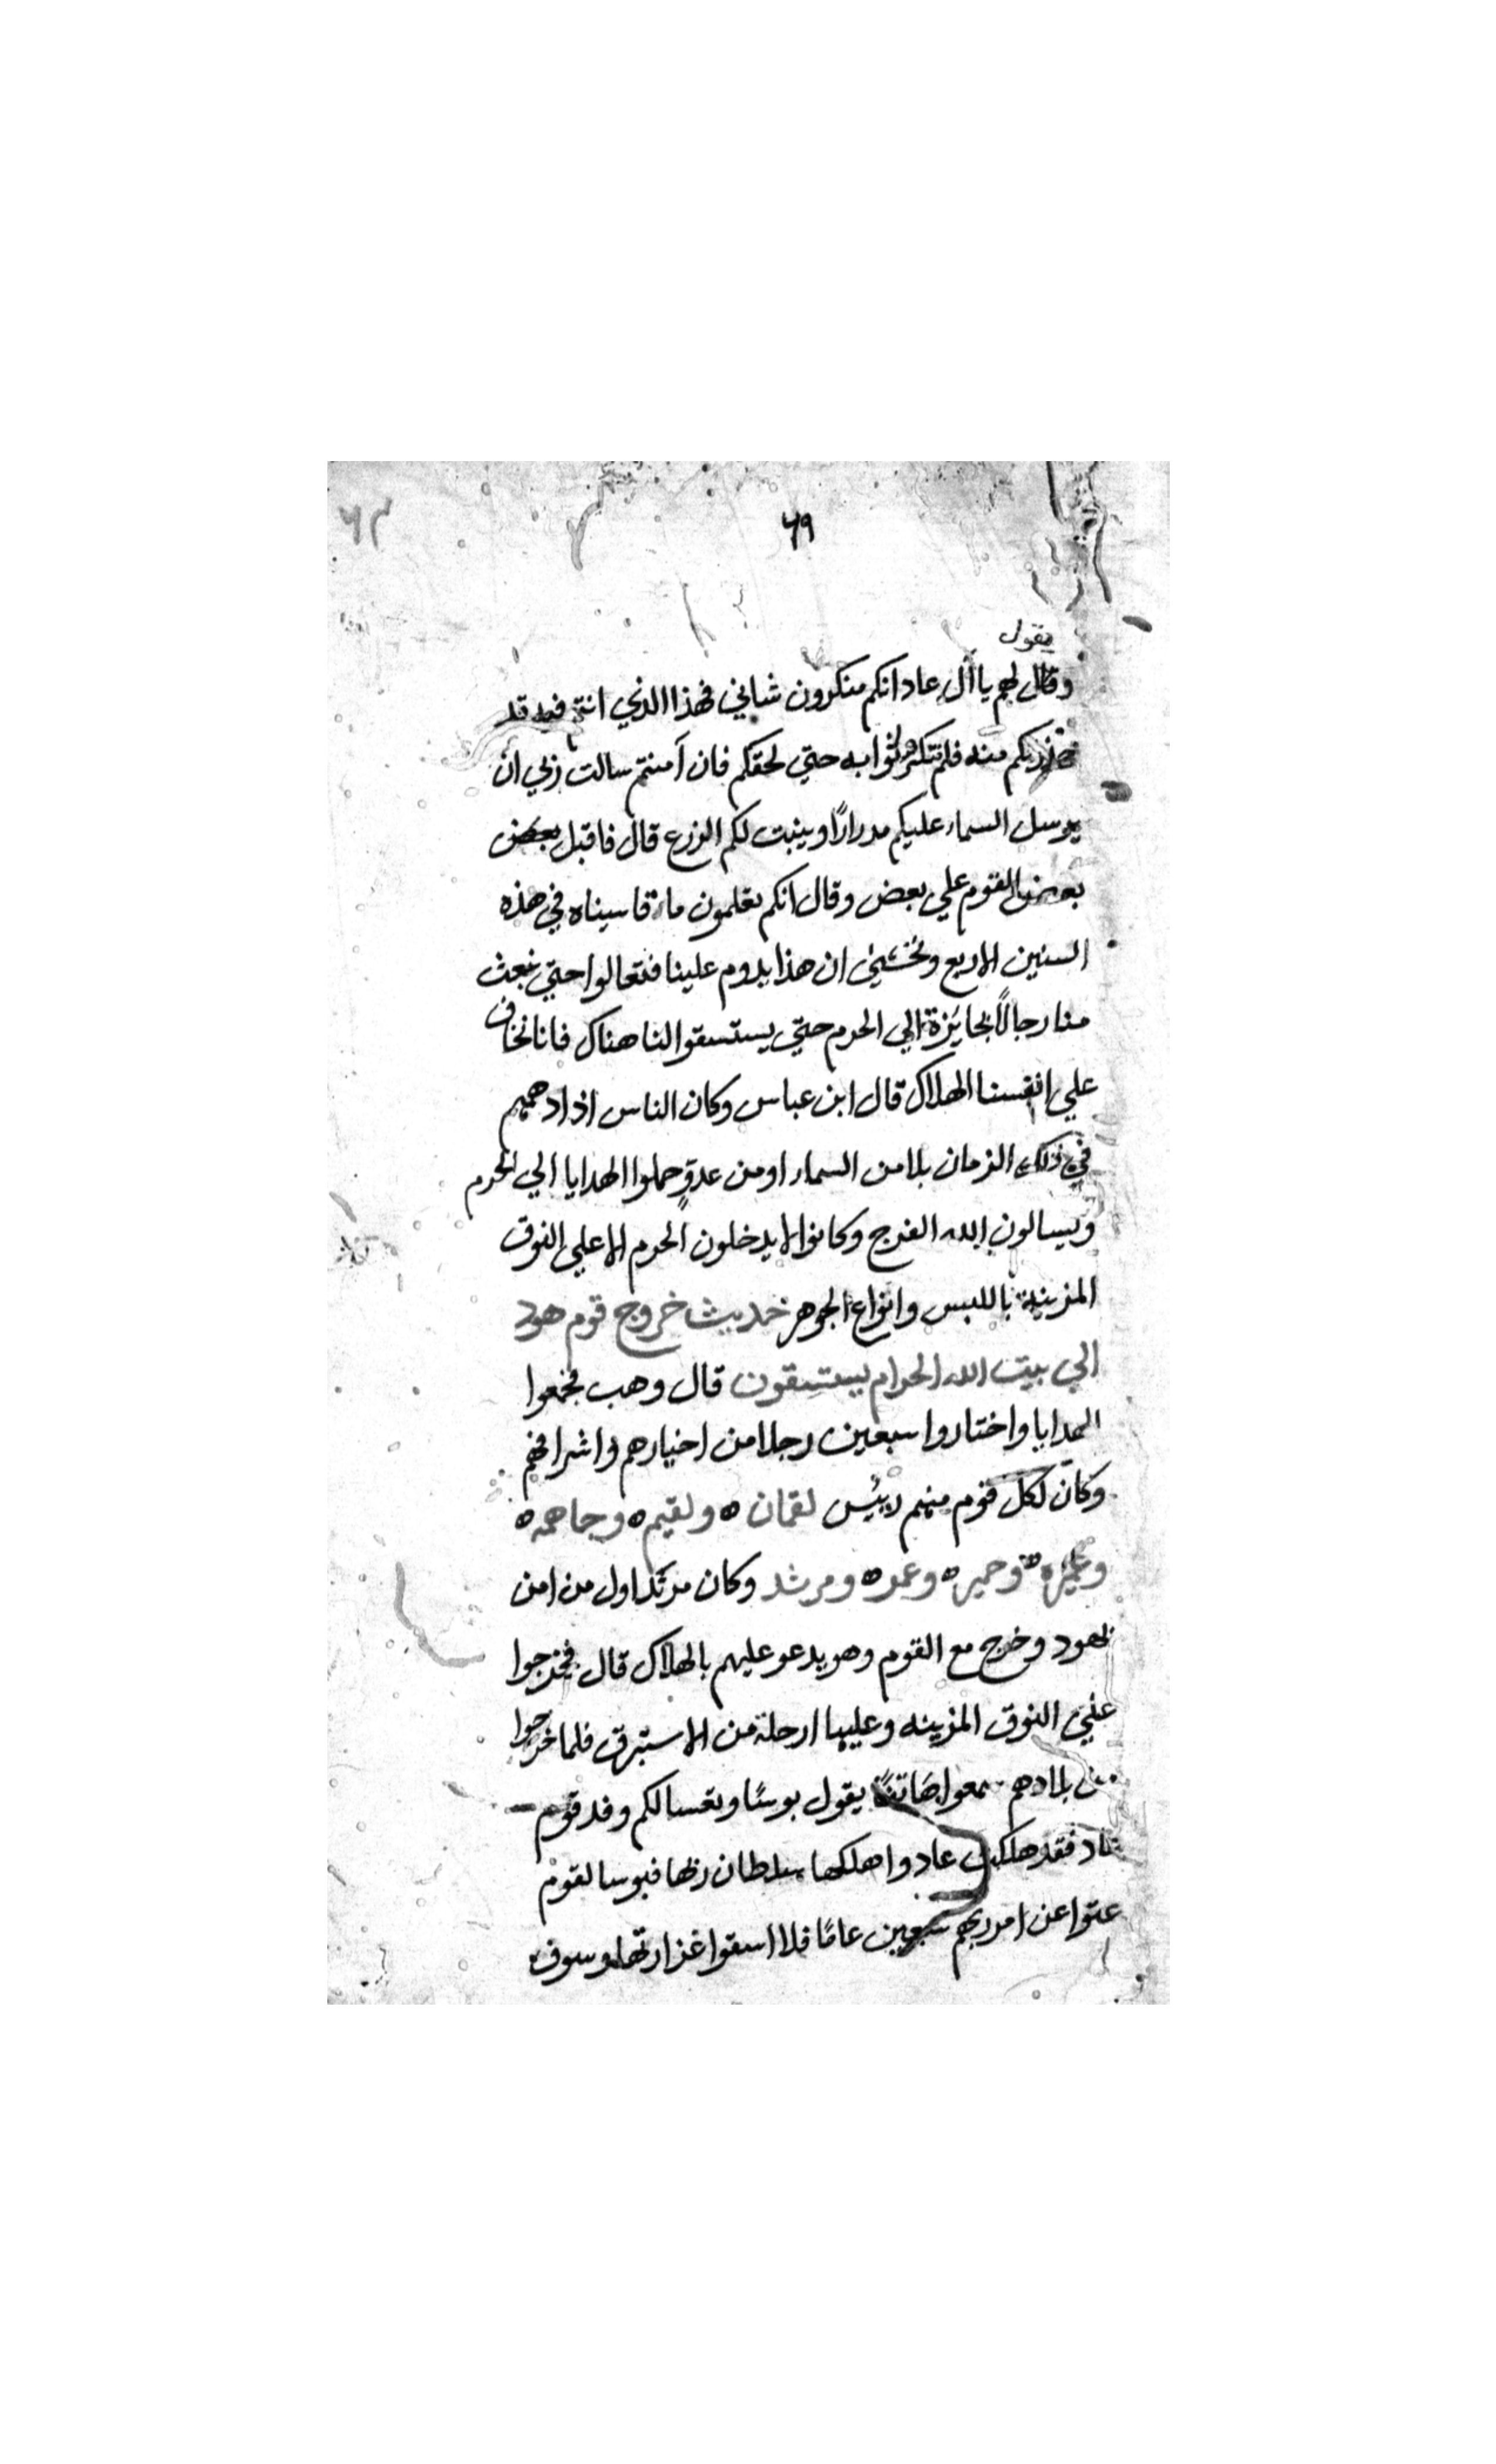 ٦٣
٦٩
يقول
وقال لهم يا أل عاد انكم منكرون شاني فهذا الذي انتم فيه قد
حذرتكم منه فلم تكترثوا به حتي لحقكم فان آمنتم سالت ربي ان
يرسل السماء عليكم مدرارًا وينبت لكم الزرع قال فاقبل بعض
بعض القوم علي بعض وقال انكم تعلمون ما قاسيناه في هذه
السنين الاربع ونخشي ان هذا يدوم علينا فتعالوا حتي نبعث
منا رجالًا بجايزة الي الحرم حتي يستسقوا لنا هناك فانا نخاف
علي انفسنا الهلاك قال ابن عباس وكان الناس اذا دهمهم
في ذلك الزمان بلا من السماء او من عدوٍ حملوا الهدايا الي الحرم
ويسالون الله الفرج وكانوا لا يدخلون الحرم الا علي النوق
المزينة باللبس وانواع الجوهر حديث خروج قوم هود
الي بيت الله الحرام يستسقون قال وهب فجمعوا
الهدايا واختاروا سبعين رجلا من اخيارهم واشرافهم
وكان لكل قوم منهم رييس لقمان ه ولقيم ه وجاهمه ه
وعميره ه وحميره ه وعمر ه ومرثد وكان مرثد اول من امن
بهود وخرج مع القوم وهو يدعو عليهم بالهلاك قال فخرجوا
علي النوق المزينه وعليها ارحلة من الاستبرق فلما خرجوا
من بلادهم سمعوا هاتفًا يقول بوسًا وتعسا لكم وفد قوم
عاد فقد هلكت عاد واهلكها سلطان ربها فبوسا لقوم
عتوا عن امر ربهم سبعين عامًا فلا اسقوا غزارتها وسوف